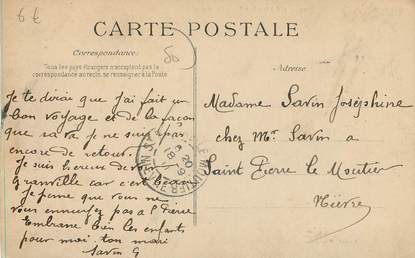 6 €
50
CARTE POSTALE
Correspondance:
Tous les pays étrangers n'acceptent pas la
correspondance au recto, se renseigner à la Poste
Adresse
Je te dirai que j'ai fait un
bon voyage et de la façon
que sa va je ne suis pas
encore de retour.
Je suis heureux de
granville car c'est beau
Je pense que vous ne
vous ennuyez pas a St Pierre
Embrasse bien les enfants
pour moi. ton mari
Savin G
Madame Savin Joséphine
chez Mr Savin a
Saint Pierre le Moutier
Nièvre